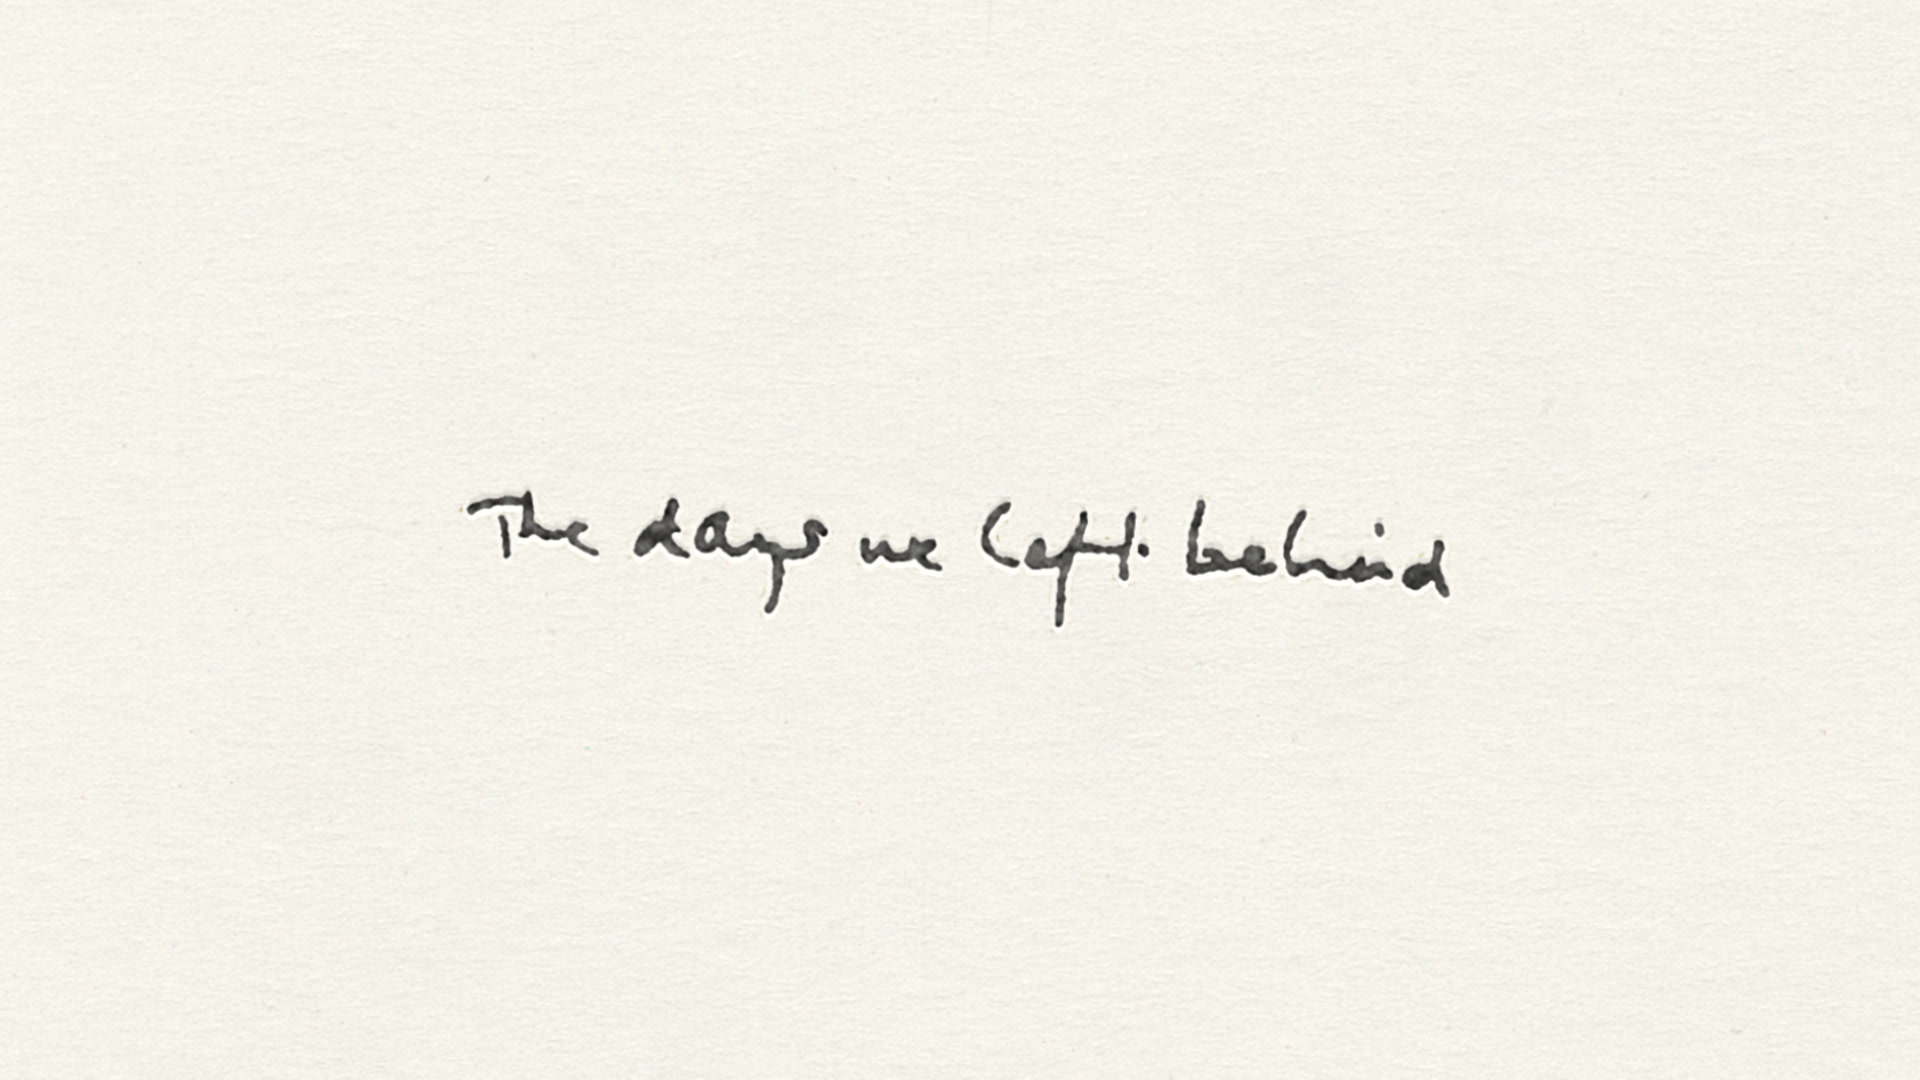 The days we left behind